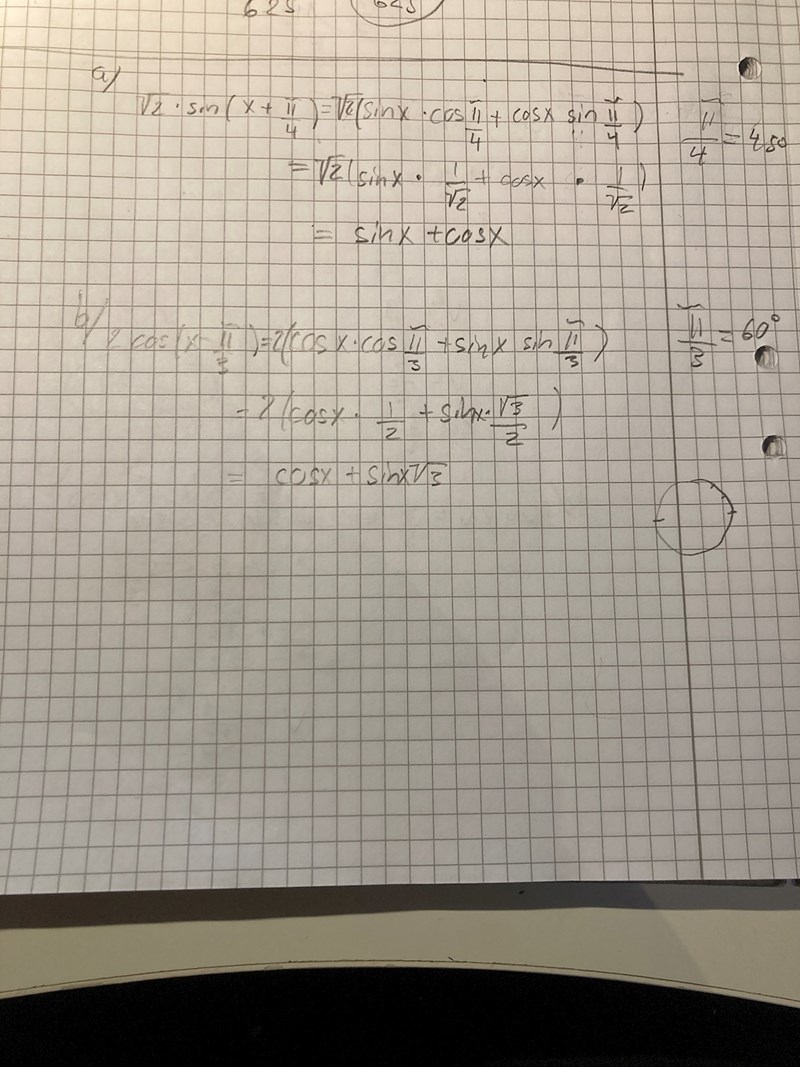 625 625
a)
√2 · sin(x + π/4) = √2(sinx · cos π/4 + cosx sin π/4) π/4 = 45°
= √2(sinx · 1/√2 + cosx · 1/√2)
= sinx + cosx
b)
2 cos(x - π/3) = 2(cosx · cos π/3 + sinx sin π/3) π/3 = 60°
= 2(cosx · 1/2 + sinx · √3/2)
= cosx + sinx√3